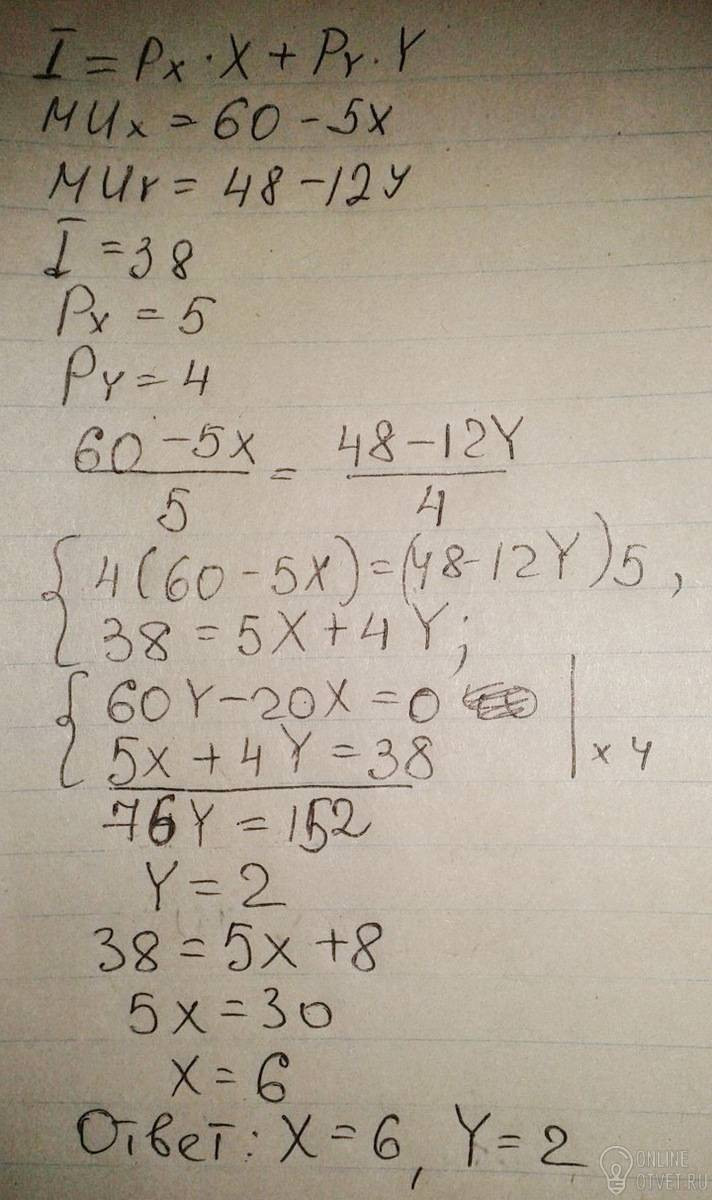 I = Px · X + PY · Y
MUx = 60 - 5X
MUY = 48 - 12Y
I = 38
Px = 5
PY = 4
60 - 5X / 5 = 48 - 12Y / 4
{ 4(60 - 5X) = (48 - 12Y)5,
38 = 5X + 4Y;
{ 60Y - 20X = 0
5X + 4Y = 38 | x 4
76Y = 152
Y = 2
38 = 5X + 8
5X = 30
X = 6
Ответ: X = 6, Y = 2
ONLINE
OTVET.RU